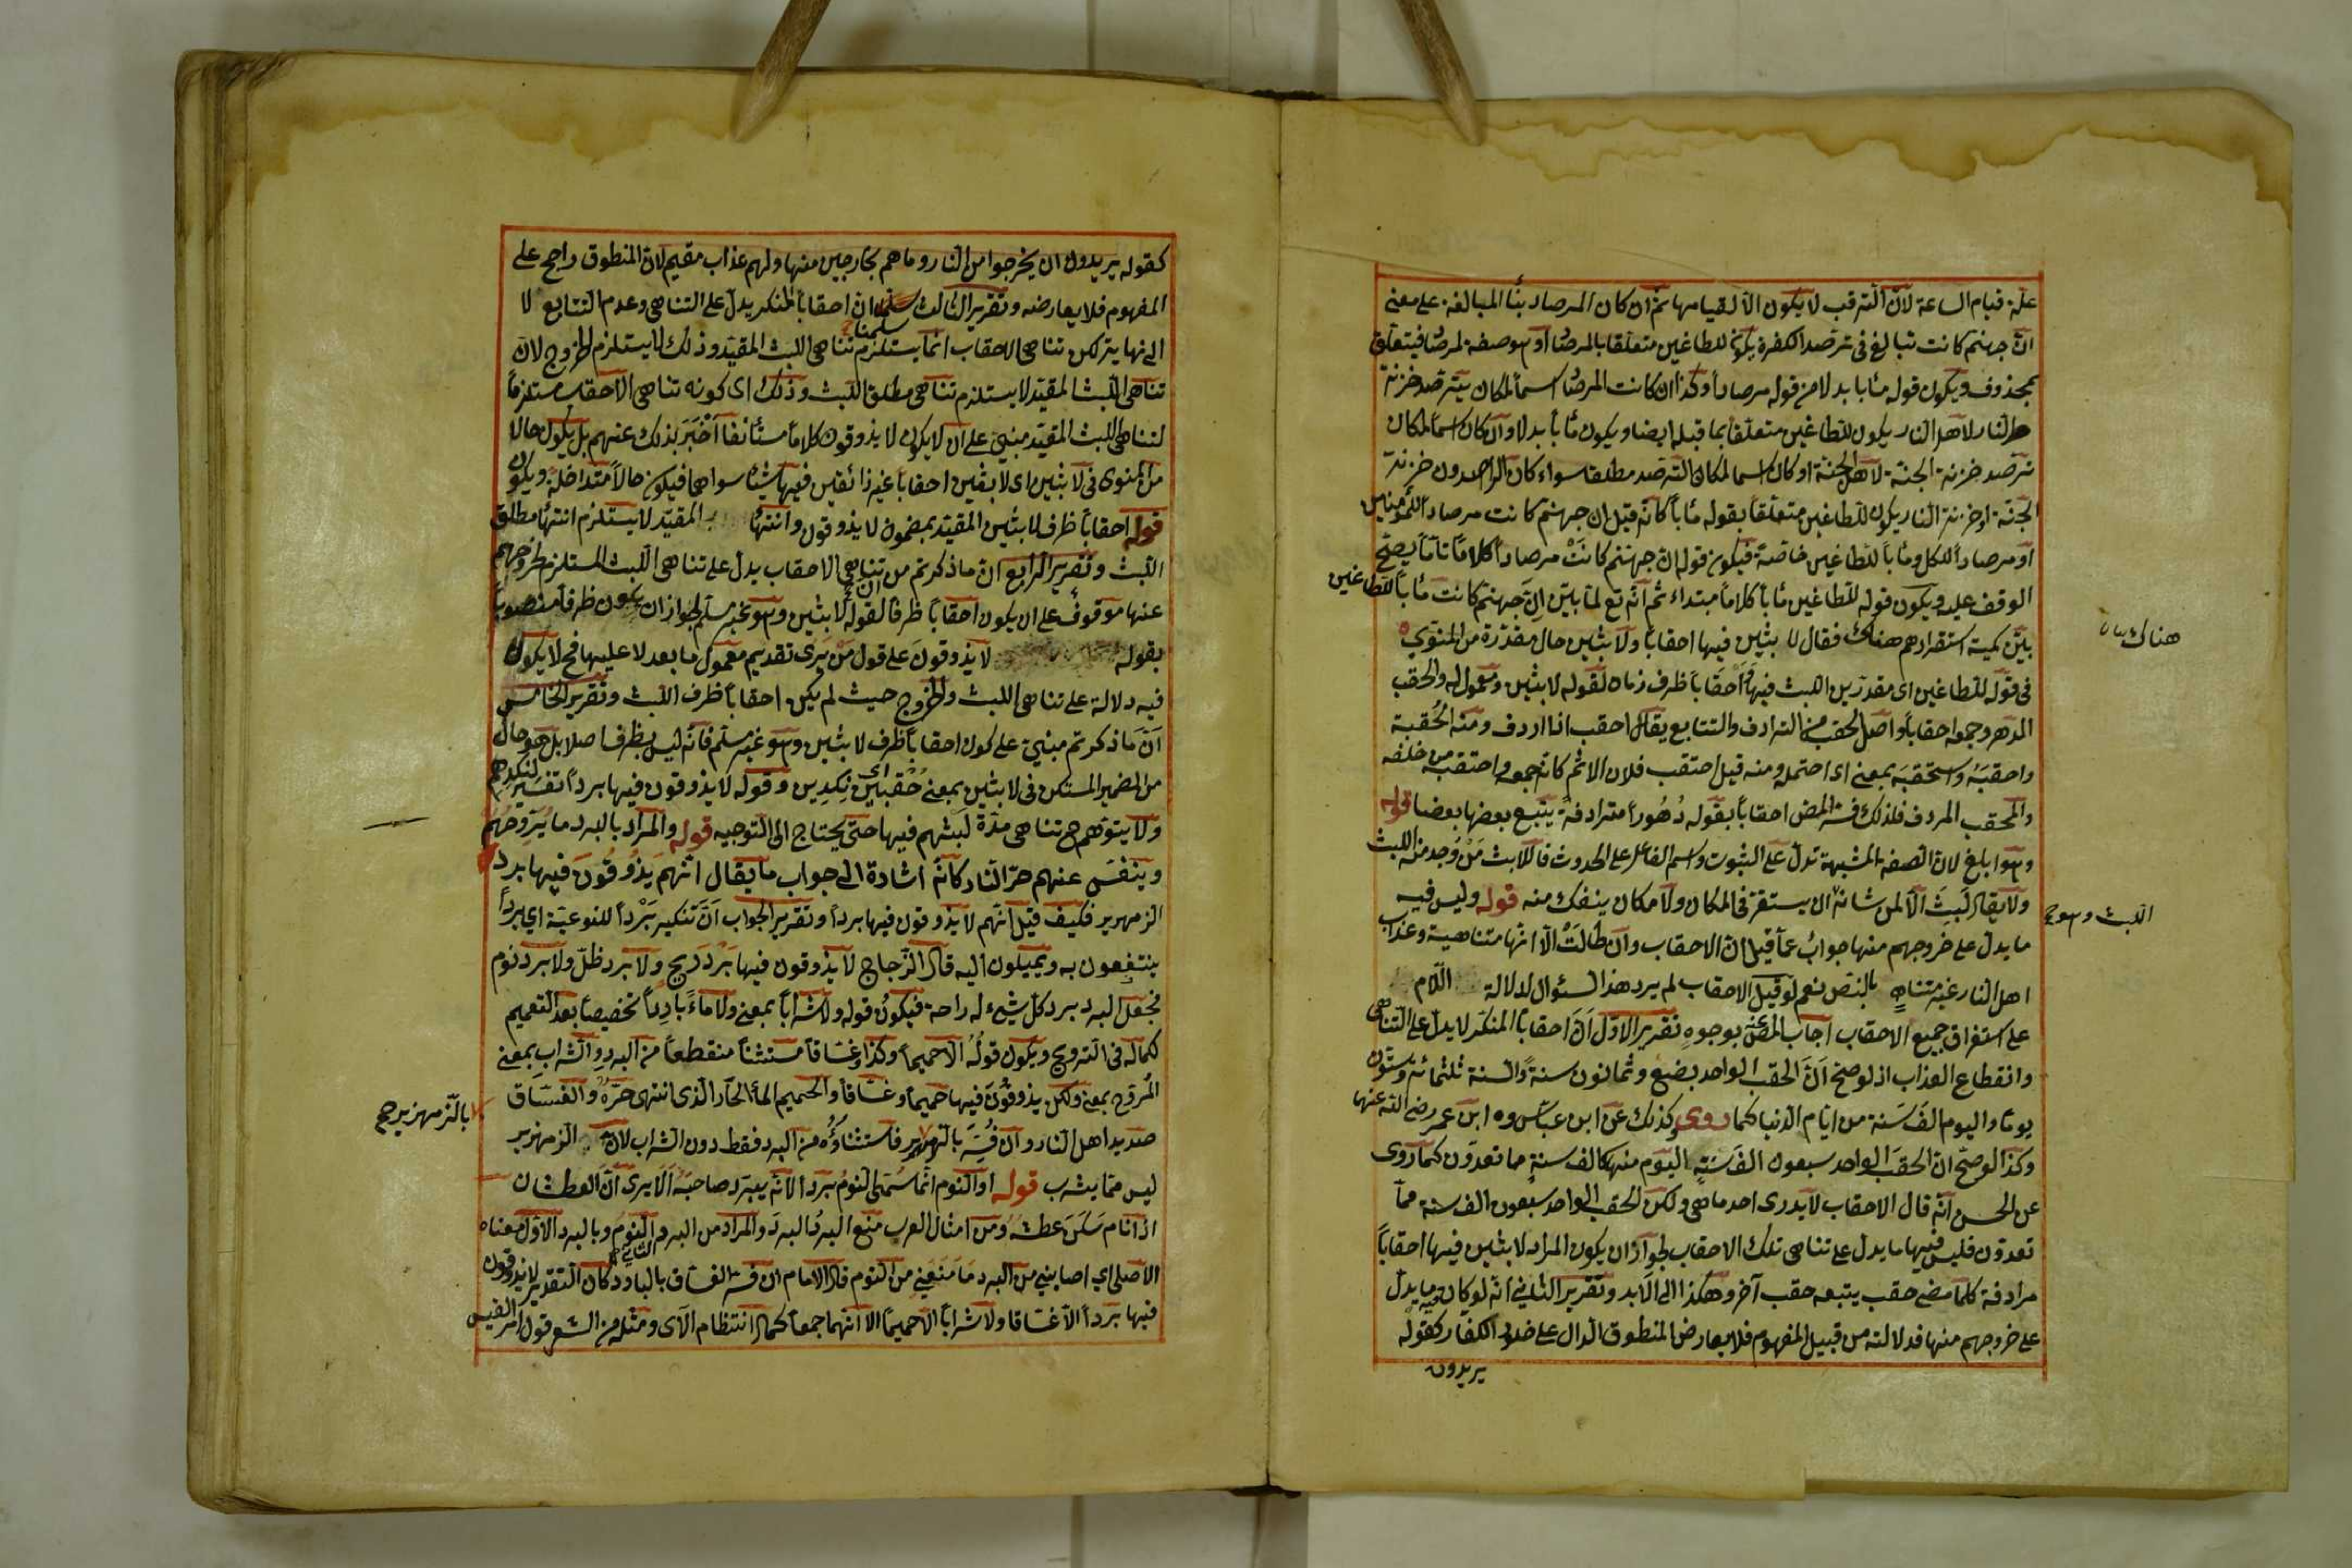 علة قيام الساعة لان الترقب لا يكون الا لقيامها ثم ان كان المرصاد بناء المبالغة على معنى
ان جهنم كانت تبالغ في ترصد الكفرة يكون للطاغين متعلقا بالمرصاد او هو صفة لمرصاد فيتعلق
بمحذوف ويكون قوله مئابا بدلا من قوله مرصادا وكذا ان كانت المرصاد اسما لمكان يترصد خزنة
النار لاهل النار يكون للطاغين متعلقا بما قبله ايضا ويكون مئابا بدلا وان كان اسما لمكان
ترصد خزنة الجنة لاهل الجنة او كان اسما لمكان الترصد مطلقا سواء كان الراصدون خزنة
الجنة او خزنة النار يكون للطاغين متعلقا بقوله مئابا كانه قيل ان جهنم كانت مرصادا للمؤمنين
او مرصادا للكل ومئابا للطاغين خاصة فيكون قوله ان جهنم كانت مرصادا كلاما تاما يصح
الوقف عليه ويكون قوله للطاغين مئابا كلاما مبتداء ثم انه تع لما بين ان جهنم كانت مئابا للطاغين
بين كمية استقرارهم هناك فقال لابثين فيها احقابا ولابثين حال مقدرة من المنوى
في قوله للطاغين اى مقدرين اللبث فيها واحقابا ظرف زمان لقوله لابثين ومعمول له والحقب
الدهر وجمعه احقابا واصل الحقب من الترادف والتتابع يقال احقب اذا اردف ومنه الحقبة
واحقبه واستحقبه بمعنى اى احتمله ومنه قيل احتقب فلان الاثم كانه جمعه واحتقبه من خلفه
والمحقب المردف فلذلك فسر المص احقابا بقوله دهورا مترادفة يتبع بعضها بعضا قوله
وهو ابلغ لان الصفة المشبهة تدل على الثبوت واسم الفاعل على الحدوث فاللابث من وجد منه اللبث
ولا يقال لبث الا لمن شانه ان يستقر في المكان ولا مكان ينفك منه قوله وليس فيه
ما يدل على خروجهم منها جواب عما قيل ان الاحقاب وان طالت الا انها متناهية وعذاب
اهل النار غير متناه بالنص نعم لو قيل الاحقاب لم يرد هذا السئوال لدلالة اللام
على استغراق جميع الاحقاب اجاب المص عنه بوجوه تقرير الاول ان احقابا المنكر لا يدل على التناهى
وانقطاع العذاب اذ لو صح ان الحقب الواحد بضع وثمانون سنة والسنة ثلثمائة وستون
يوما واليوم الف سنة من ايام الدنيا كما روى كذلك عن ابن عباس وابن عمر رضى الله عنها
وكذا لو صح ان الحقب الواحد سبعون الف سنة اليوم منها كالف سنة مما تعدون كما روى
عن الحسن انه قال الاحقاب لا يدرى احد ما هى ولكن الحقب الواحد سبعون الف سنة مما
تعدون فليس فيها ما يدل على تناهى تلك الاحقاب لجواز ان يكون المراد لابثين فيها احقابا
مرادفة كلما مضى حقب يتبعه حقب آخر وهكذا الى الابد وتقرير الثاني انه لو كان فيه ما يدل
على خروجهم منها فدلالته من قبيل المفهوم فلا يعارض المنطوق الدال على خلود الكفار كقوله
يريدون
هناك
اللبث وهو ح
كقوله يريدون ان يخرجوا من النار وما هم بخارجين منها ولهم عذاب مقيم لان المنطوق راجح على
المفهوم فلا يعارضه وتقرير الثالث سلمنا ان احقابا المنكر يدل على التناهى وعدم التتابع لا
الى نهاية لكن تناهى الاحقاب انما يستلزم تناهى اللبث المقيد وذلك لا يستلزم الخروج لان
تناهى اللبث المقيد لا يستلزم تناهى مطلق اللبث وذلك اى كونه تناهى الاحقاب مستلزما
لتناهى اللبث المقيد مبني على ان لا يكون لا يذوقون كلاما مستأنفا اخبر بذلك عنهم بل يكون حالا
من المنوى في لابثين اى لابثين احقابا غير ذائقين فيها شيئا سواهما فيكون حالا متداخلة ويكون
قوله احقابا ظرف لابثين المقيد بمضمون لا يذوقون وانتهاء المقيد لا يستلزم انتهاء مطلق
اللبث وتقرير الرابع ان ما ذكرتم من تناهى الاحقاب يدل على تناهى اللبث المستلزم لخروجهم
عنها موقوف على ان يكون احقابا ظرفا لقوله لابثين وهو غير مسلم لجواز ان يكون ظرفا منصوبا
بقوله لا يذوقون على قول من يرى تقديم معمول ما بعد لا عليها فح لا يكون
فيه دلالة على تناهى اللبث والخروج حيث لم يكن احقابا ظرف اللبث وتقرير الخامس
ان ما ذكرتم مبني على كون احقابا ظرف لابثين وهو غير مسلم فانه ليس بظرف اصلا بل هو حال
من الضمير المستكن في لابثين بمعنى حقبين اى نكدين وقوله لا يذوقون فيها بردا تفسير لنكدهم
ولا يتوهم ح تناهى مدة لبثهم فيها حتى يحتاج الى التوجيه قوله والمراد بالبرد ما يروحهم
وينفس عنهم حر النار كانه اشارة الى جواب ما يقال انهم يذوقون فيها برد
الزمهرير فكيف قيل انهم لا يذوقون فيها بردا وتقرير الجواب ان تنكير بردا للنوعية اي بردا
ينتفعون به ويميلون اليه قال الزجاج لا يذوقون فيها برد ريح ولا برد ظل ولا برد نوم
فجعل البرد برد كل شيء له راحة فيكون قوله ولا شرابا بمعنى ولا ماء باردا تخصيصا بعد التعميم
لكماله في الترويح ويكون قوله الا حميما وكذا وغساقا مستثنا منقطعا من البرد والشراب بمعنى
المروح بمعنى ولكن يذوقون فيها حميما وغساقا والحميم الماء الحار الذى انتهى حره والغساق
صديد اهل النار وان فسر بالزمهرير فاستثناؤه من البرد فقط دون الشراب لان الزمهرير
ليس مما يشرب قوله او النوم انما سمى النوم بردا لانه يبرد صاحبه الا يرى ان العطشان
اذا نام سكن عطشه ومن امثال العرب منع البرد البرد والمراد من البرد النوم وبالبرد الاول معناه
الاصلى اي اصابني من البرد ما منعني من النوم قال الامام ان فسر الغساق بالبارد كان التقدير لا يذوقون
فيها بردا الا غساقا ولا شرابا الا حميما الا انهما جمعا لكمال انتظام الآى ومثله من الشعر قول امرء القيس
بالزمهرير ح